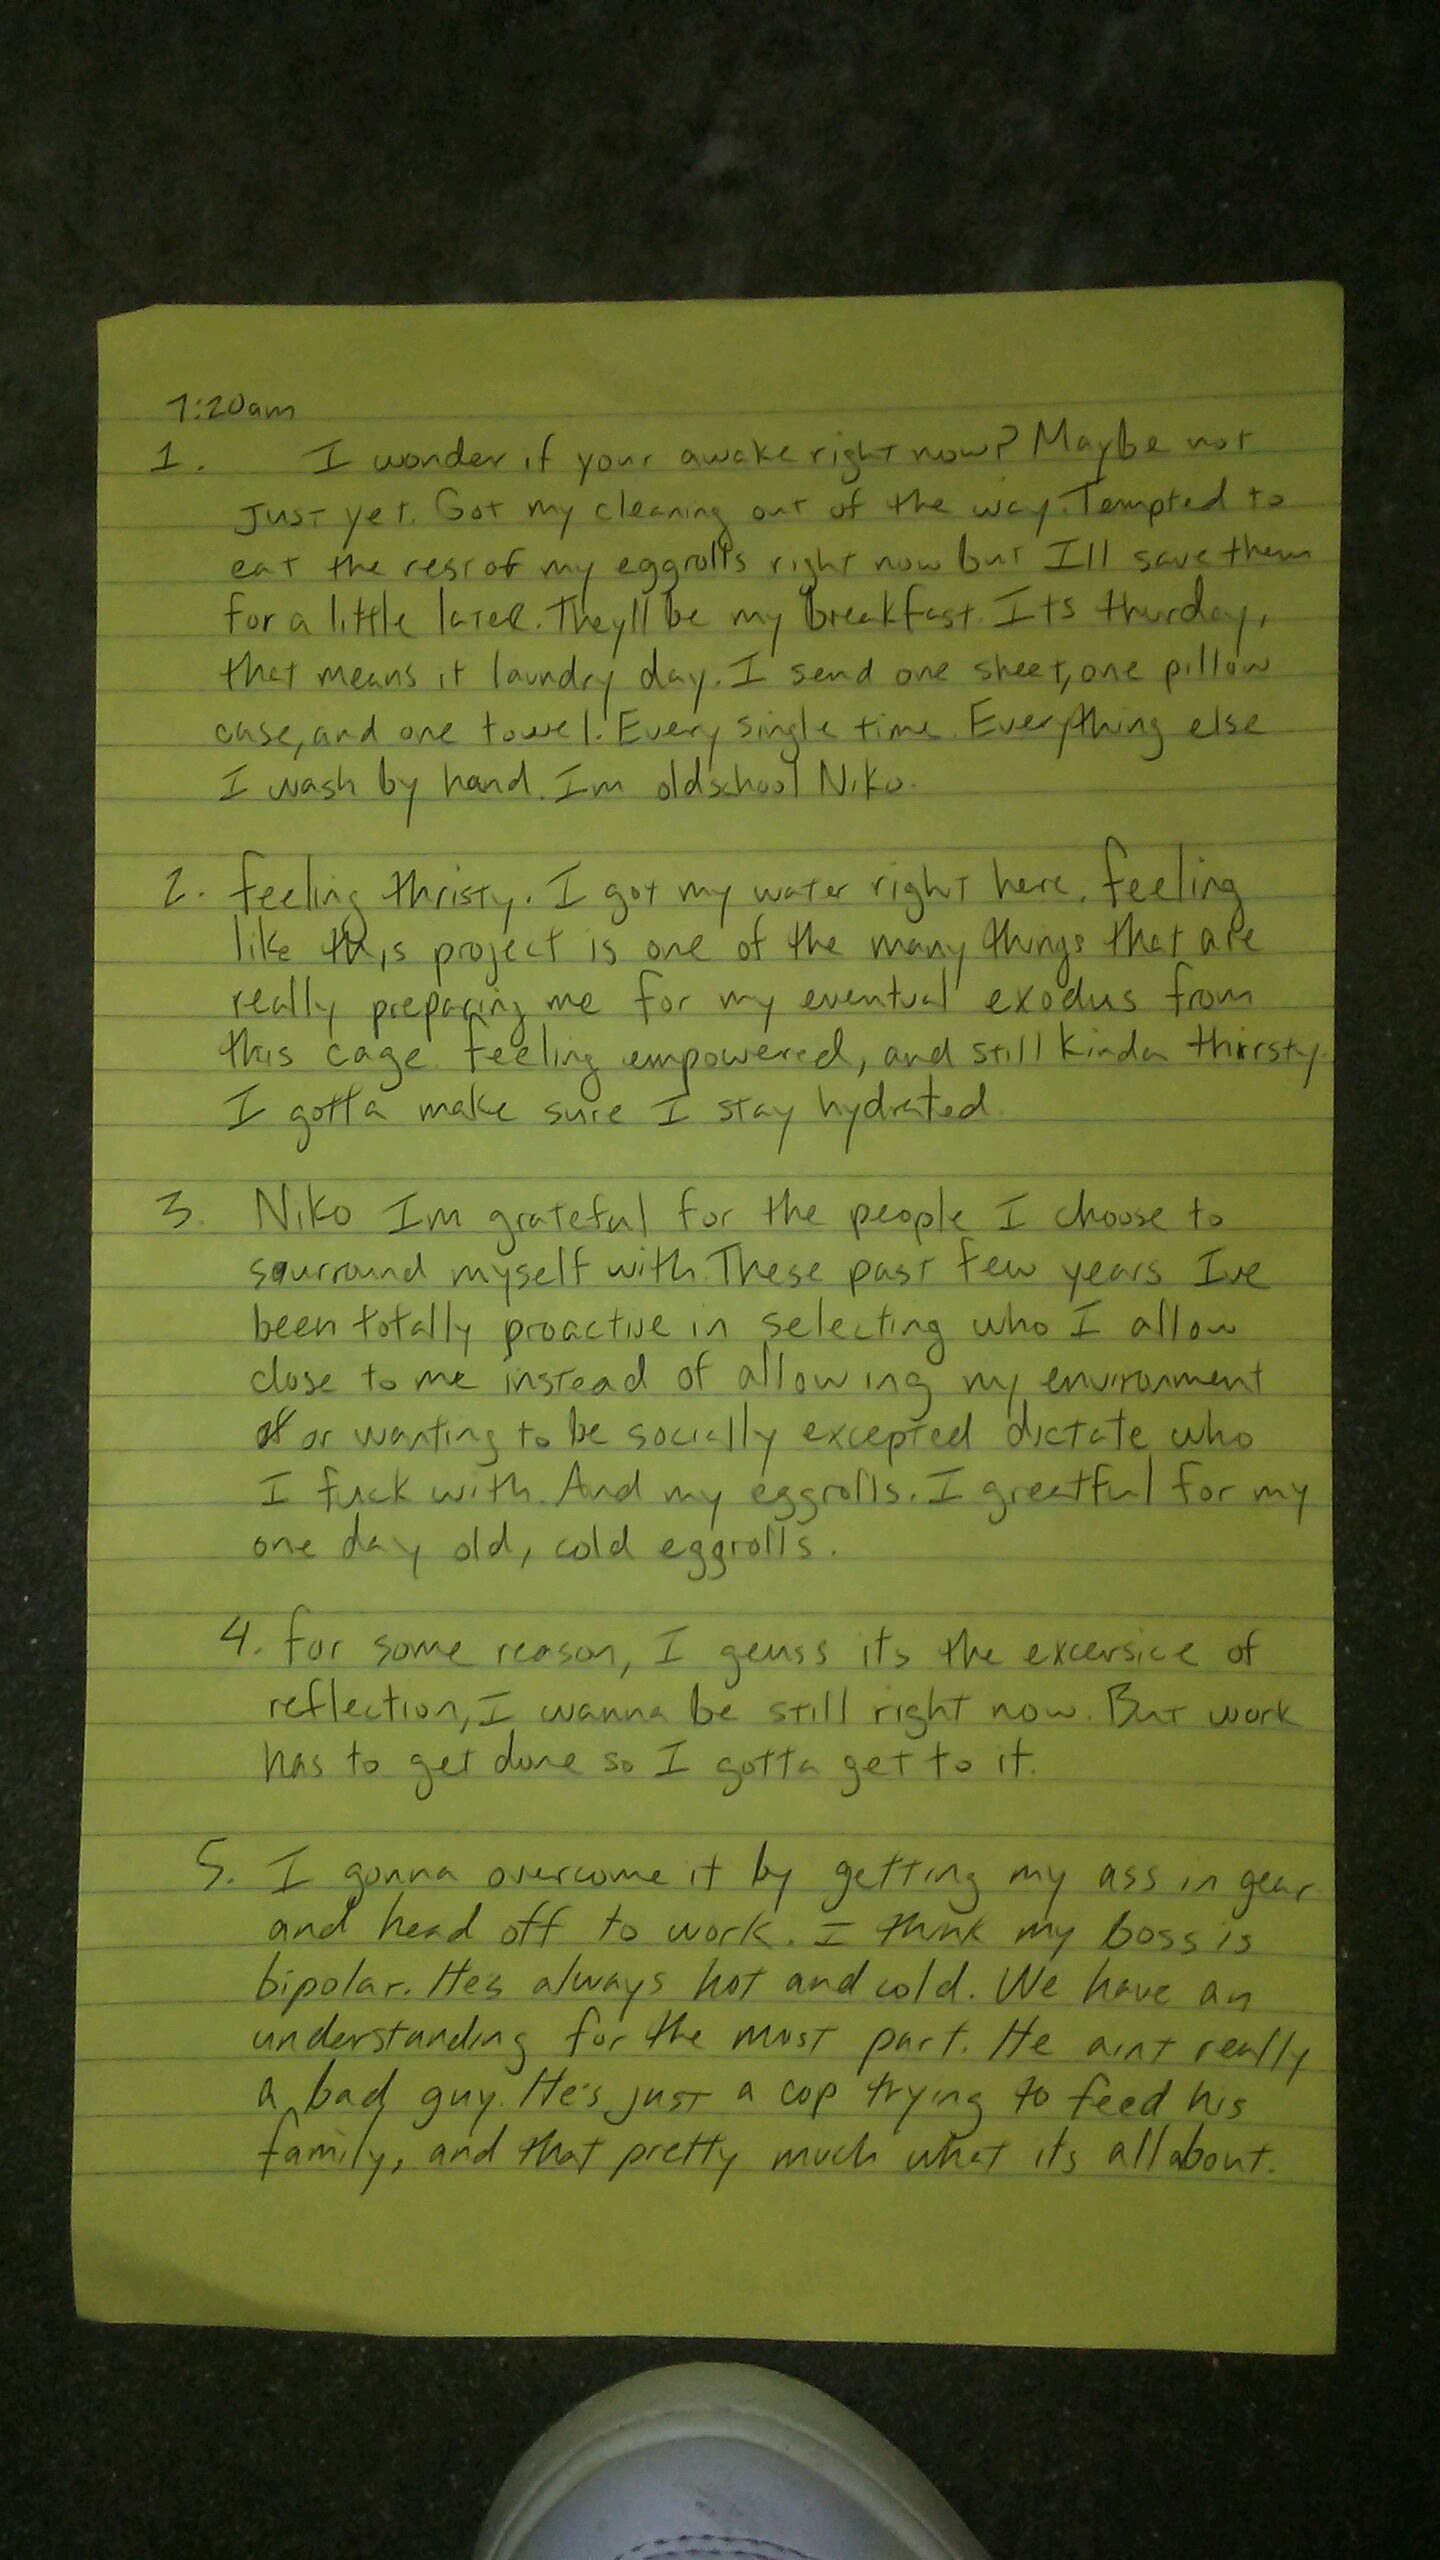 7:20am
1. I wonder if your awake right now? Maybe not
Just yet. Got my cleaning out of the way. Tempted to
eat the rest of my eggrolls right now but Ill save them
for a little later. Theyll be my breakfast. Its thurday,
that means it laundry day. I send one sheet, one pillow
case, and one towel. Every single time. Everything else
I wash by hand. Im oldschool Niko.
2. Feeling thristy. I got my water right here. Feeling
like this project is one of the many things that are
really preparing me for my eventual exodus from
this cage. Feeling empowered, and still kinda thirsty.
I gotta make sure I stay hydrated.
3. Niko Im grateful for the people I choose to
sourround myself with. These past few years Ive
been totally proactive in selecting who I allow
close to me instead of allowing my environment
or wanting to be socially excepted dictate who
I fuck with. And my eggrolls. I greatful for my
one day old, cold eggrolls.
4. For some reason, I geuss its the excersice of
reflection, I wanna be still right now. But work
has to get done so I gotta get to it.
5. I gonna overcome it by getting my ass in gear
and head off to work. I think my boss is
bipolar. Hes always hot and cold. We have an
understanding for the most part. He aint really
a bad guy. He's just a cop trying to feed his
family, and that pretty much what its all about.